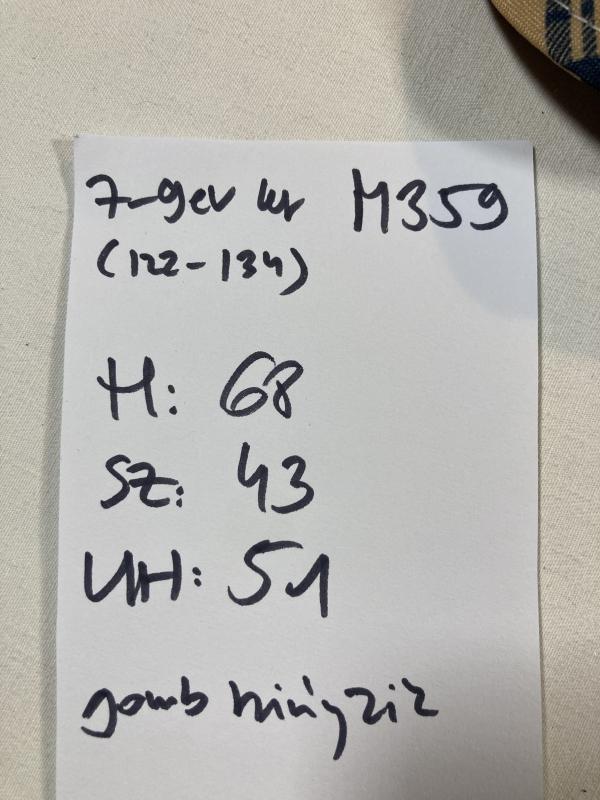 7-9 év kr M359
(122-134)
H: 68
SZ: 43
UH: 51
gomb hiányzik